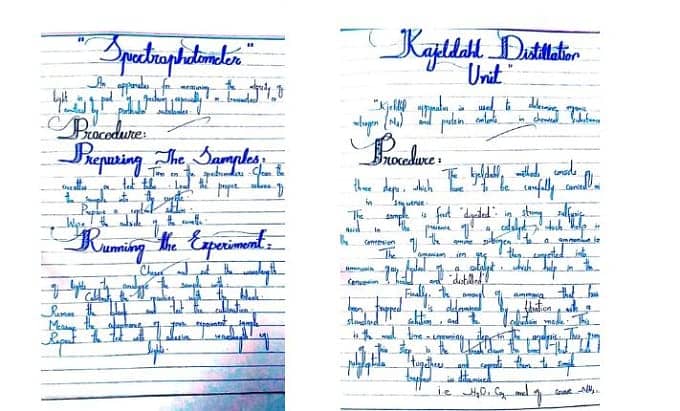 "Spectraphotometer"
An apparatus for measuring the intensity of
light in a part of spectrum especially as transmitted or
emitted by particular substances.
Procedure:
Preparing The Samples:
Turn on the spectrometer. Clean the
cuvettes or test tubes. Load the proper volume of
the sample into the cuvette.
Prepare a control solution.
Wipe the outside of the cuvette.
Running the Experiment:
Choose and set the wavelength
of lights to analyze the sample with.
Calibrate the machine with the blank.
Remove the blank and test the calibration.
Measure the absorbance of your experiment sample
Repeat the test with wavelength of
lights.
Kajeldahl Distillation
Unit"
"Kjeldahl apparatus is used to determine organic
nitrogen (N₂) and protein contents in chemical substances
Procedure:
The kjeldahl methods consists of
three steps, which have to be carefully carried out
in sequence.
The sample is first "digested" in strong sulfuric
acid in the presence of a catalyst, which helps in
the conversion of the amine nitrogen to a ammonium
The ammonium ion are then converted into
ammonia gas, of a catalyst, which help in the
conversion, heated and "distilled".
Finally, the amount of ammonia that has
been trapped is determined by titration with a
standard solution, and the calculation made. This
is the most time-consuming step in the analysis. This
of this step is the break down the that
together and
trapped is determined
i.e H₂O, CO₂ and of course NH₃.